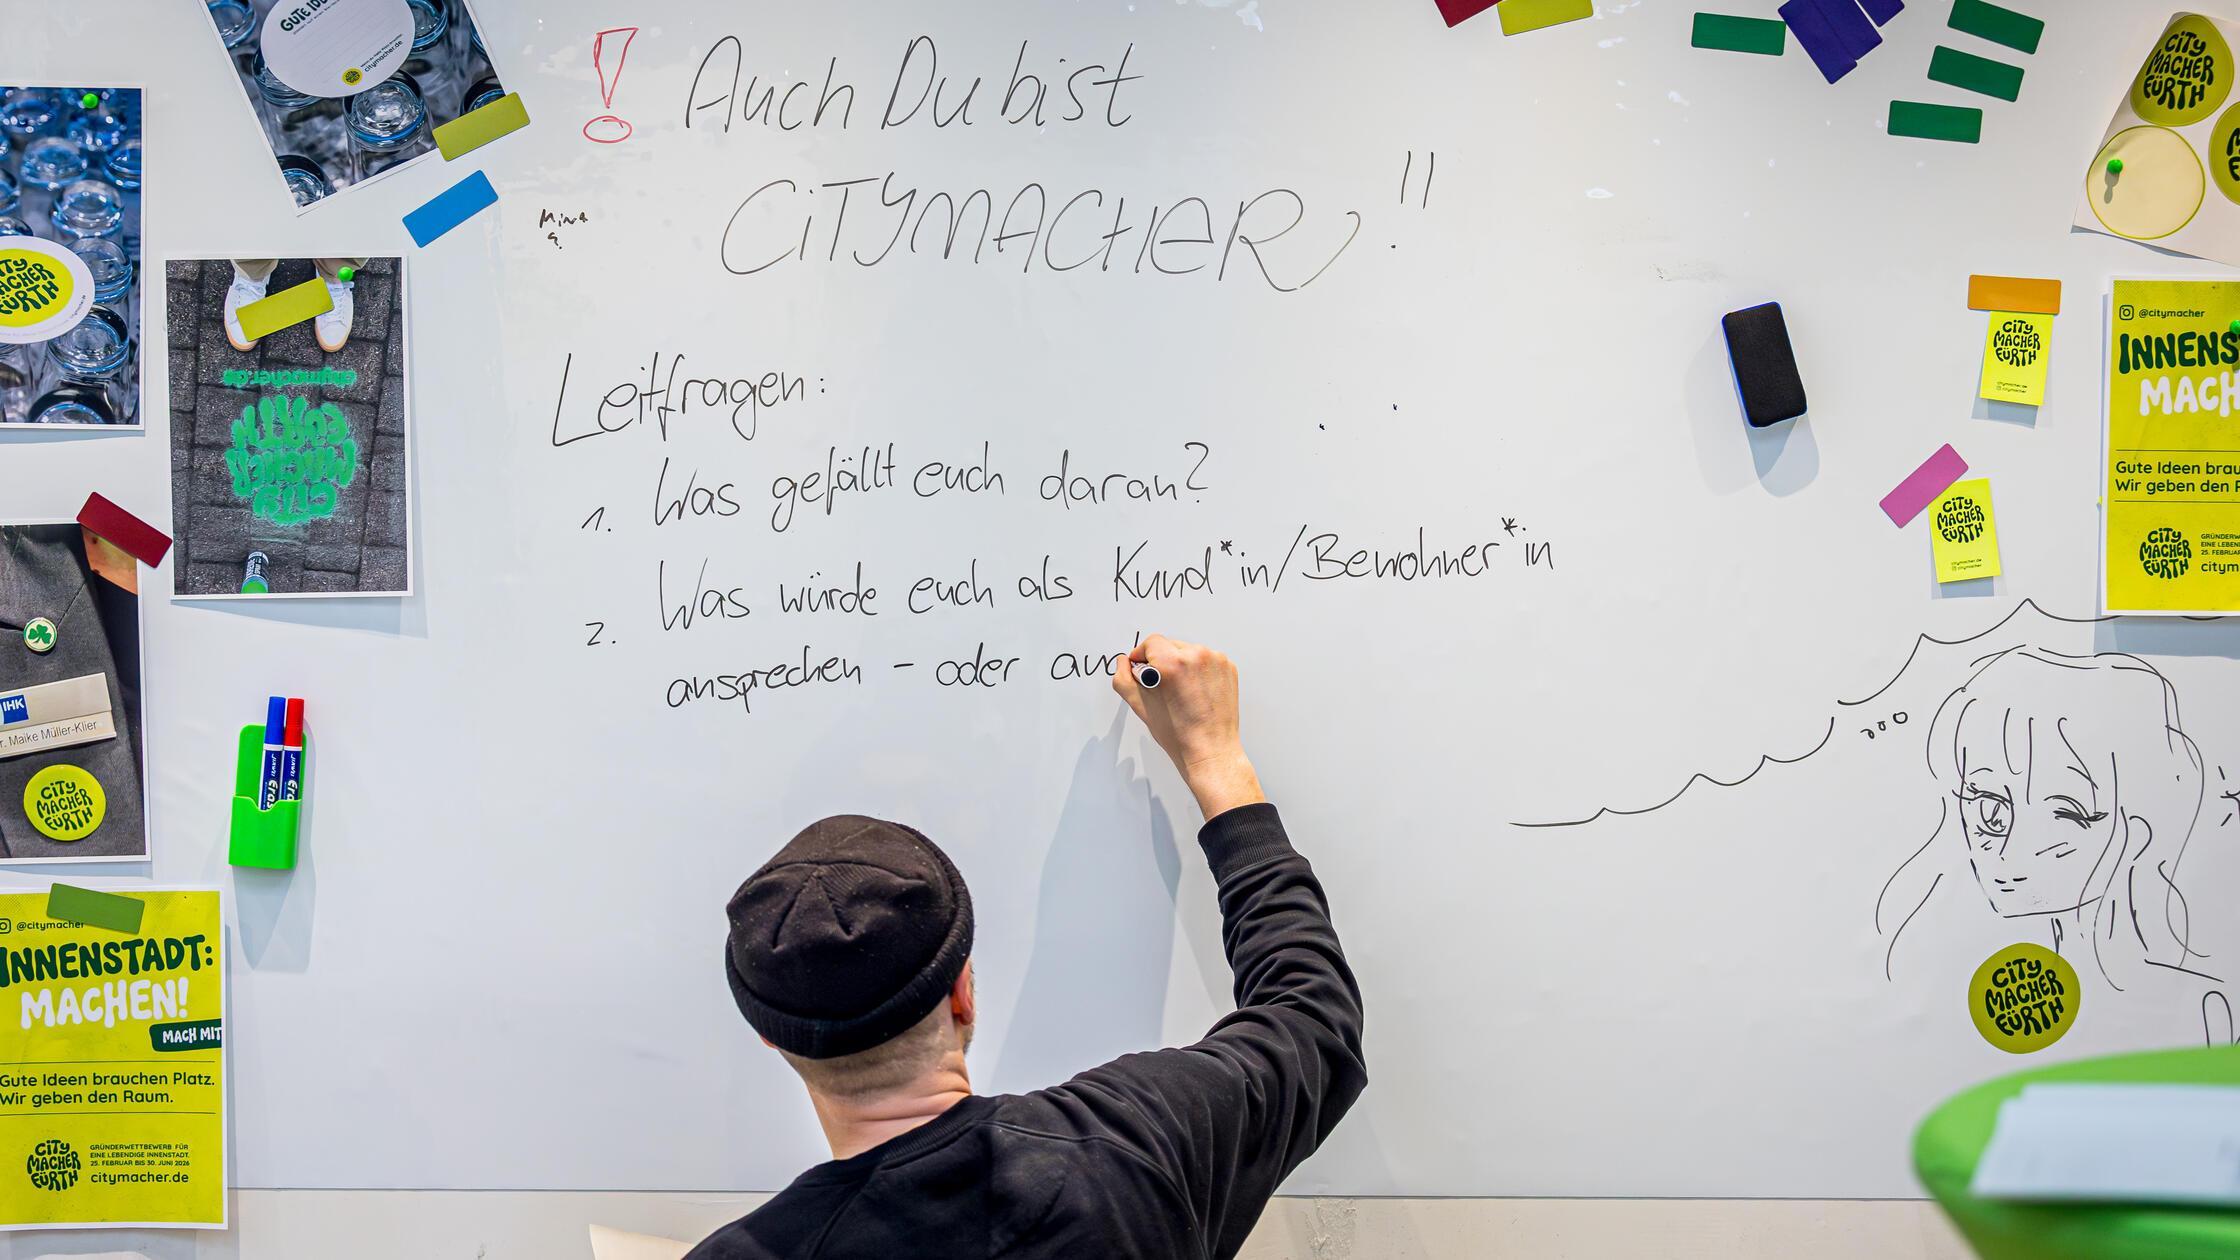 GUTE
citymacher.de
! Auch Du bist
CITYMACHER!!
Mina
?
Leitfragen:
1. Was gefällt euch daran?
2. Was würde euch als Kund*in/Bewohner*in
ansprechen - oder auch
CITY
MACHER
FÜRTH
citymacher.de
CITY
MACHER
FÜRTH
IHK
r. Maike Müller-Klier
CITY
MACHER
FÜRTH
@citymacher
INNENSTADT:
MACHEN!
MACH MIT
Gute Ideen brauchen Platz.
Wir geben den Raum.
CITY
MACHER
FÜRTH
GRÜNDERWETTBEWERB FÜR
EINE LEBENDIGE INNENSTADT.
25. FEBRUAR BIS 30. JUNI 2026
citymacher.de
CITY
MACHER
FÜRTH
CITY
MACHER
FÜRTH
CITY
MACHER
FÜRTH
@citymacher
INNENS
MACH
Gute Ideen brau
Wir geben den R
CITY
MACHER
FÜRTH
GRÜNDERW
EINE LEBEN
25. FEBRUA
citym
CITY
MACHER
FÜRTH